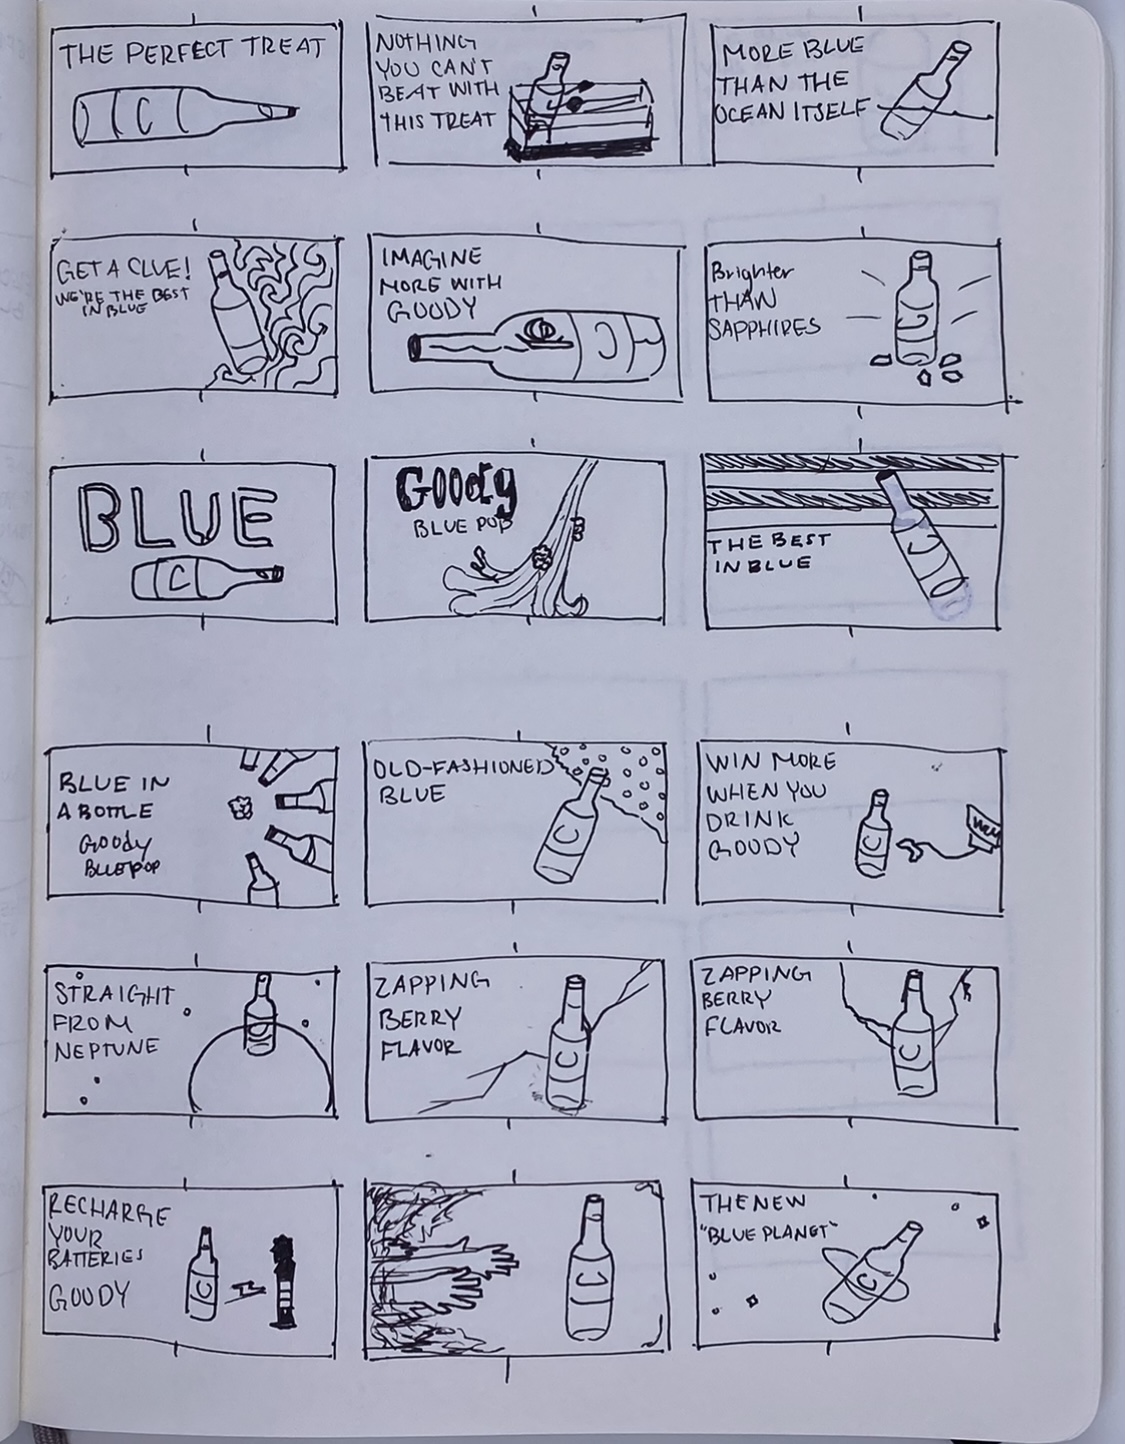 THE PERFECT TREAT
C
NOTHING
YOU CAN'T
BEAT WITH
THIS TREAT
MORE BLUE
THAN THE
OCEAN ITSELF
GET A CLUE!
WE'RE THE BEST
IN BLUE
IMAGINE
MORE WITH
GOODY
Brighter
THAN
SAPPHIRES
BLUE
C
Goody
BLUE POP
THE BEST
IN BLUE
BLUE IN
A BOTTLE
Goody
BLUE POP
OLD-FASHIONED
BLUE
C
WIN MORE
WHEN YOU
DRINK
GOODY
C
STRAIGHT
FROM
NEPTUNE
C
ZAPPING
BERRY
FLAVOR
C
ZAPPING
BERRY
FLAVOR
C
RECHARGE
YOUR
BATTERIES
GOODY
C
C
THE NEW
"BLUE PLANET"
C